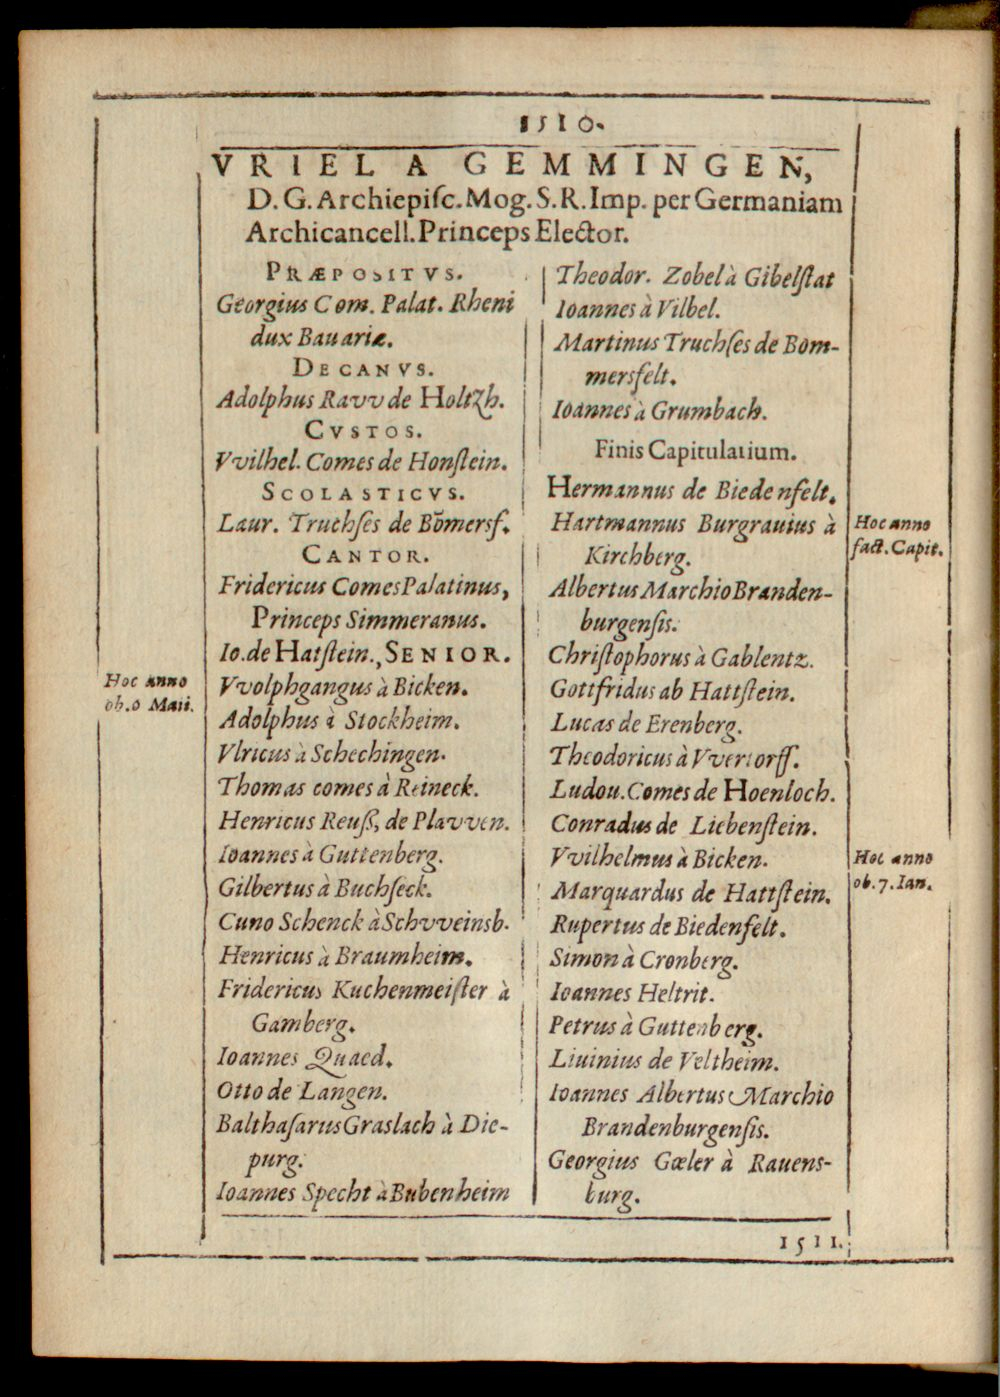 1510.
VRIEL A GEMMINGEN,
D. G. Archiepiſc. Mog. S. R. Imp. per Germaniam
Archicancell. Princeps Elector.
PRÆPOSITVS.
Georgius Com. Palat. Rheni
dux Bauariæ.
DECANVS.
Adolphus Ravv de Holtzh.
CVSTOS.
Vvilhel. Comes de Honſtein.
SCOLASTICVS.
Laur. Truchſes de Bōmersf.
CANTOR.
Fridericus Comes Palatinus,
Princeps Simmeranus.
Io. de Hatſtein., SENIOR.
Hoc anno
ob. 0 Maii.
Vvolphgangus à Bicken.
Adolphus à Stockheim.
Vlricus à Schechingen.
Thomas comes à Reineck.
Henricus Reuß, de Plavven.
Ioannes à Guttenberg.
Gilbertus à Buchſeck.
Cuno Schenck à Schvveinsb.
Henricus à Braumheim.
Fridericus Kuchenmeiſter à
Gamberg.
Ioannes Quaed.
Otto de Langen.
Balthaſarus Graslach à Die-
purg.
Ioannes Specht à Bubenheim
Theodor. Zobel à Gibelſtat
Ioannes à Vilbel.
Martinus Truchſes de Bom-
mersfelt.
Ioannes à Grumbach.
Finis Capitularium.
Hermannus de Biedenfelt.
Hartmannus Burgrauius à
Kirchberg.
Hoc anno
fact. Capit.
Albertus Marchio Branden-
burgenſis.
Chriſtophorus à Gablentz.
Gottfridus ab Hattſtein.
Lucas de Erenberg.
Theodoricus à Vvertorff.
Ludou. Comes de Hoenloch.
Conradus de Liebenſtein.
Vvilhelmus à Bicken.
Hoc anno
ob. 7. Ian.
Marquardus de Hattſtein.
Rupertus de Biedenfelt.
Simon à Cronberg.
Ioannes Heltrit.
Petrus à Guttenberg.
Liuinius de Veltheim.
Ioannes Albertus Marchio
Brandenburgenſis.
Georgius Gœler à Rauens-
burg.
1511.